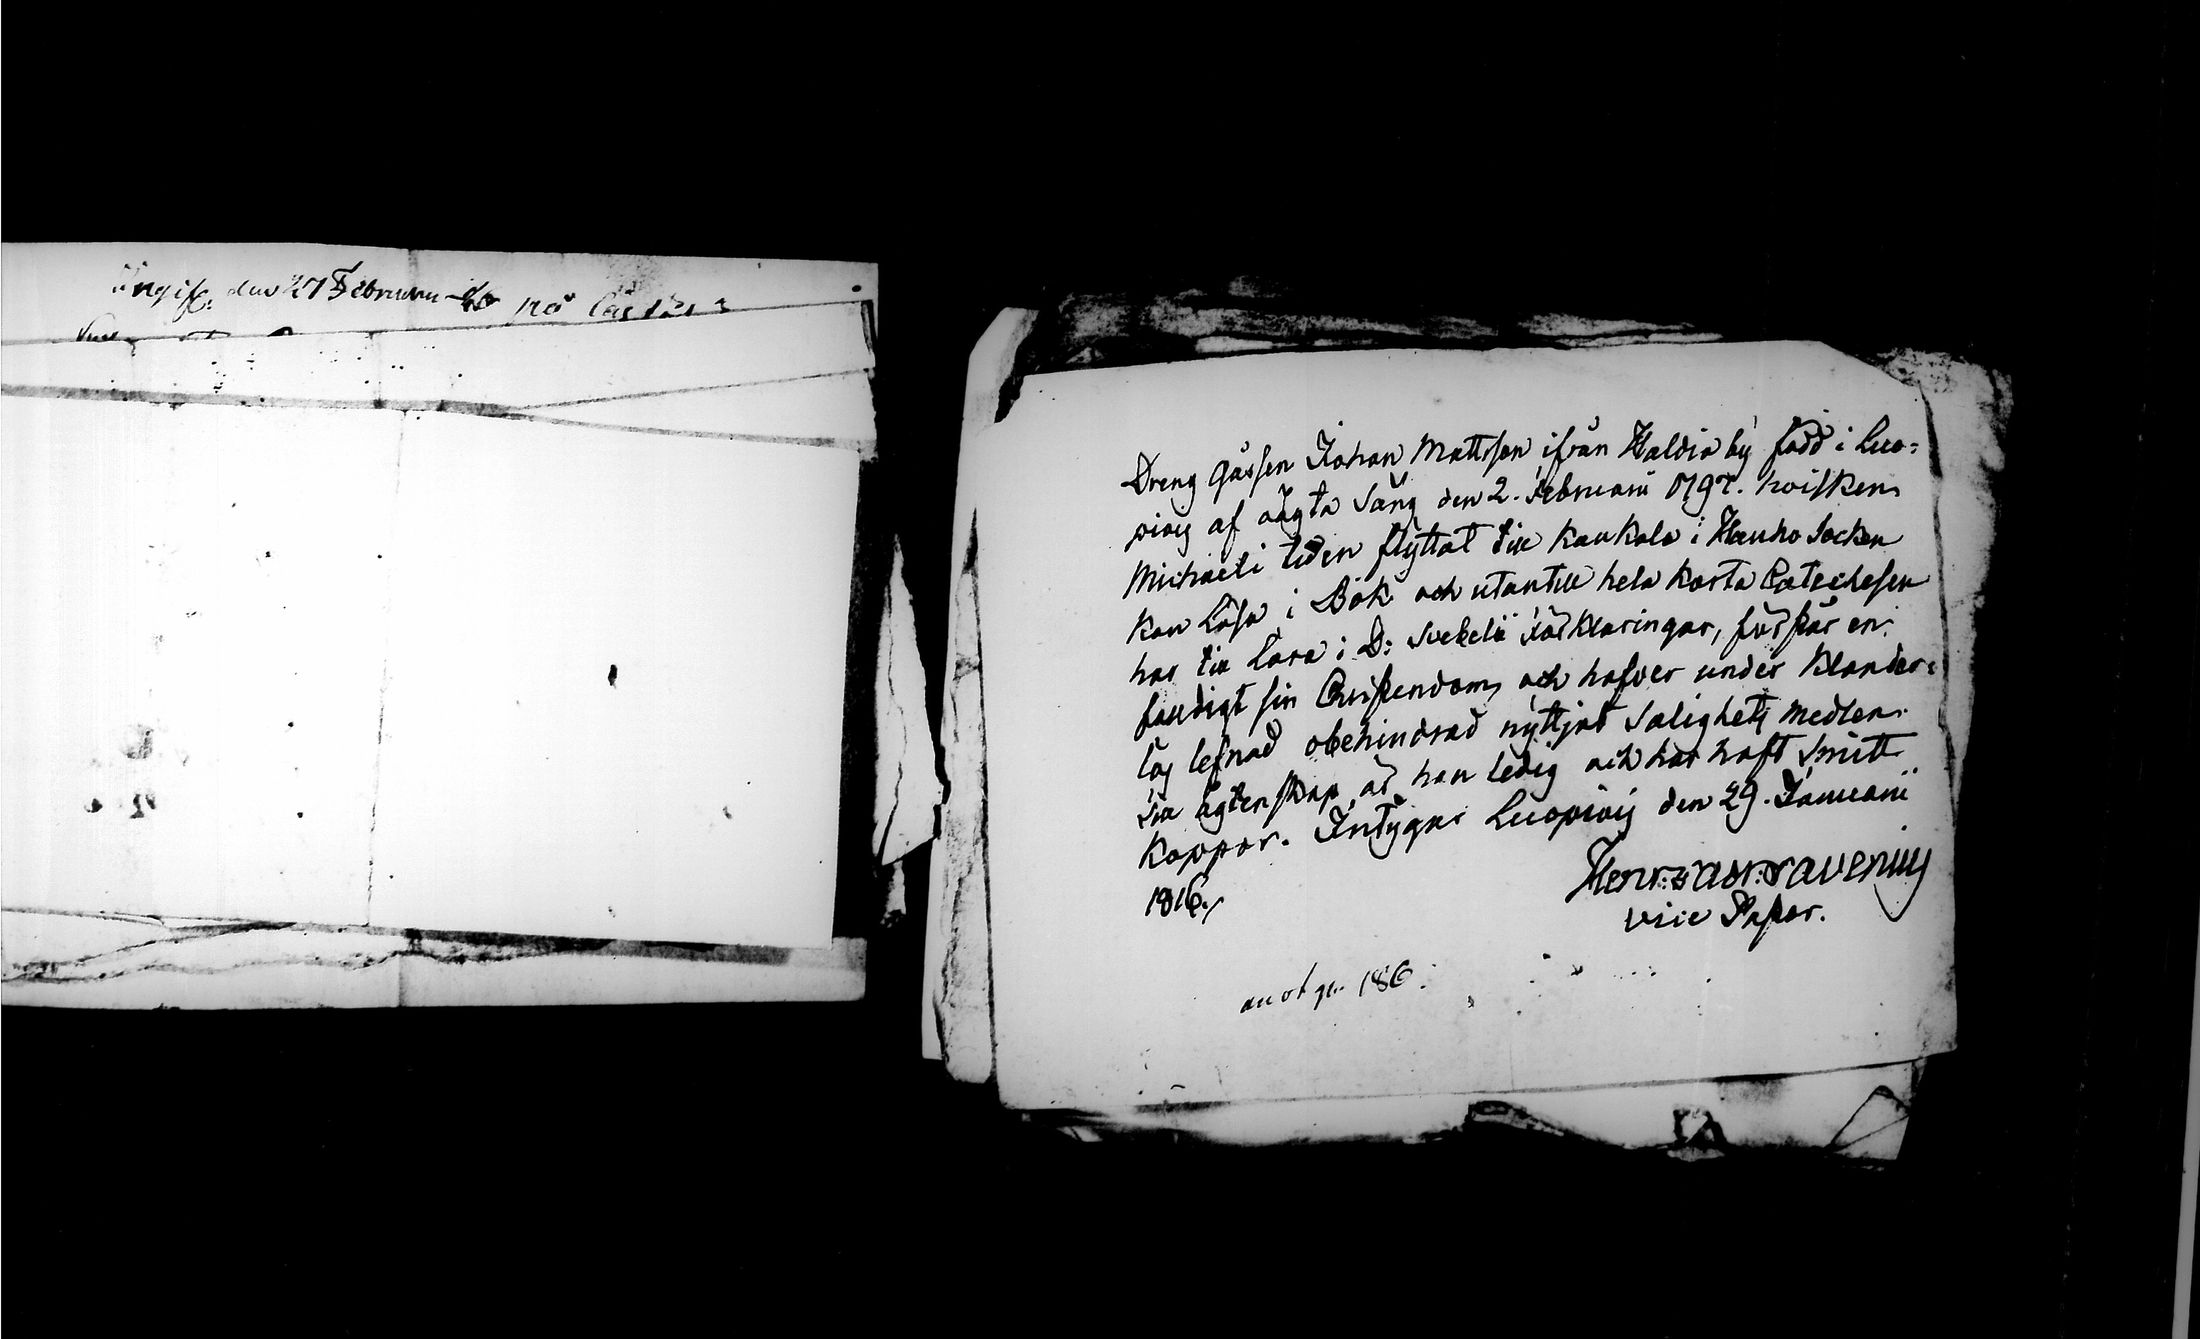 Ingif. den 27 Februari på
Dreng gåssen Johan Mattsson ifrån Haldia by född i Luo=
piois af ächta Säng den 2. Februarii 1797. hvilken
Michaeli tiden flyttat till Kaukola i Hauho Socken
kan läsa i Bok och utantill hela korta Catechesen
har till lära i D: Svebelii Förklaringar, förstår en=
faldigt sin Christendom, och hafver under klander=
lös lefnad obehindrad nyttjat Salighets medlen.
till ägtenskap är han ledig och har haft Smitt
koppor. Intygar Luopiois den 29. Januarii
1816.
Henr: Favenius
vice Pastor.
anot p. 186.